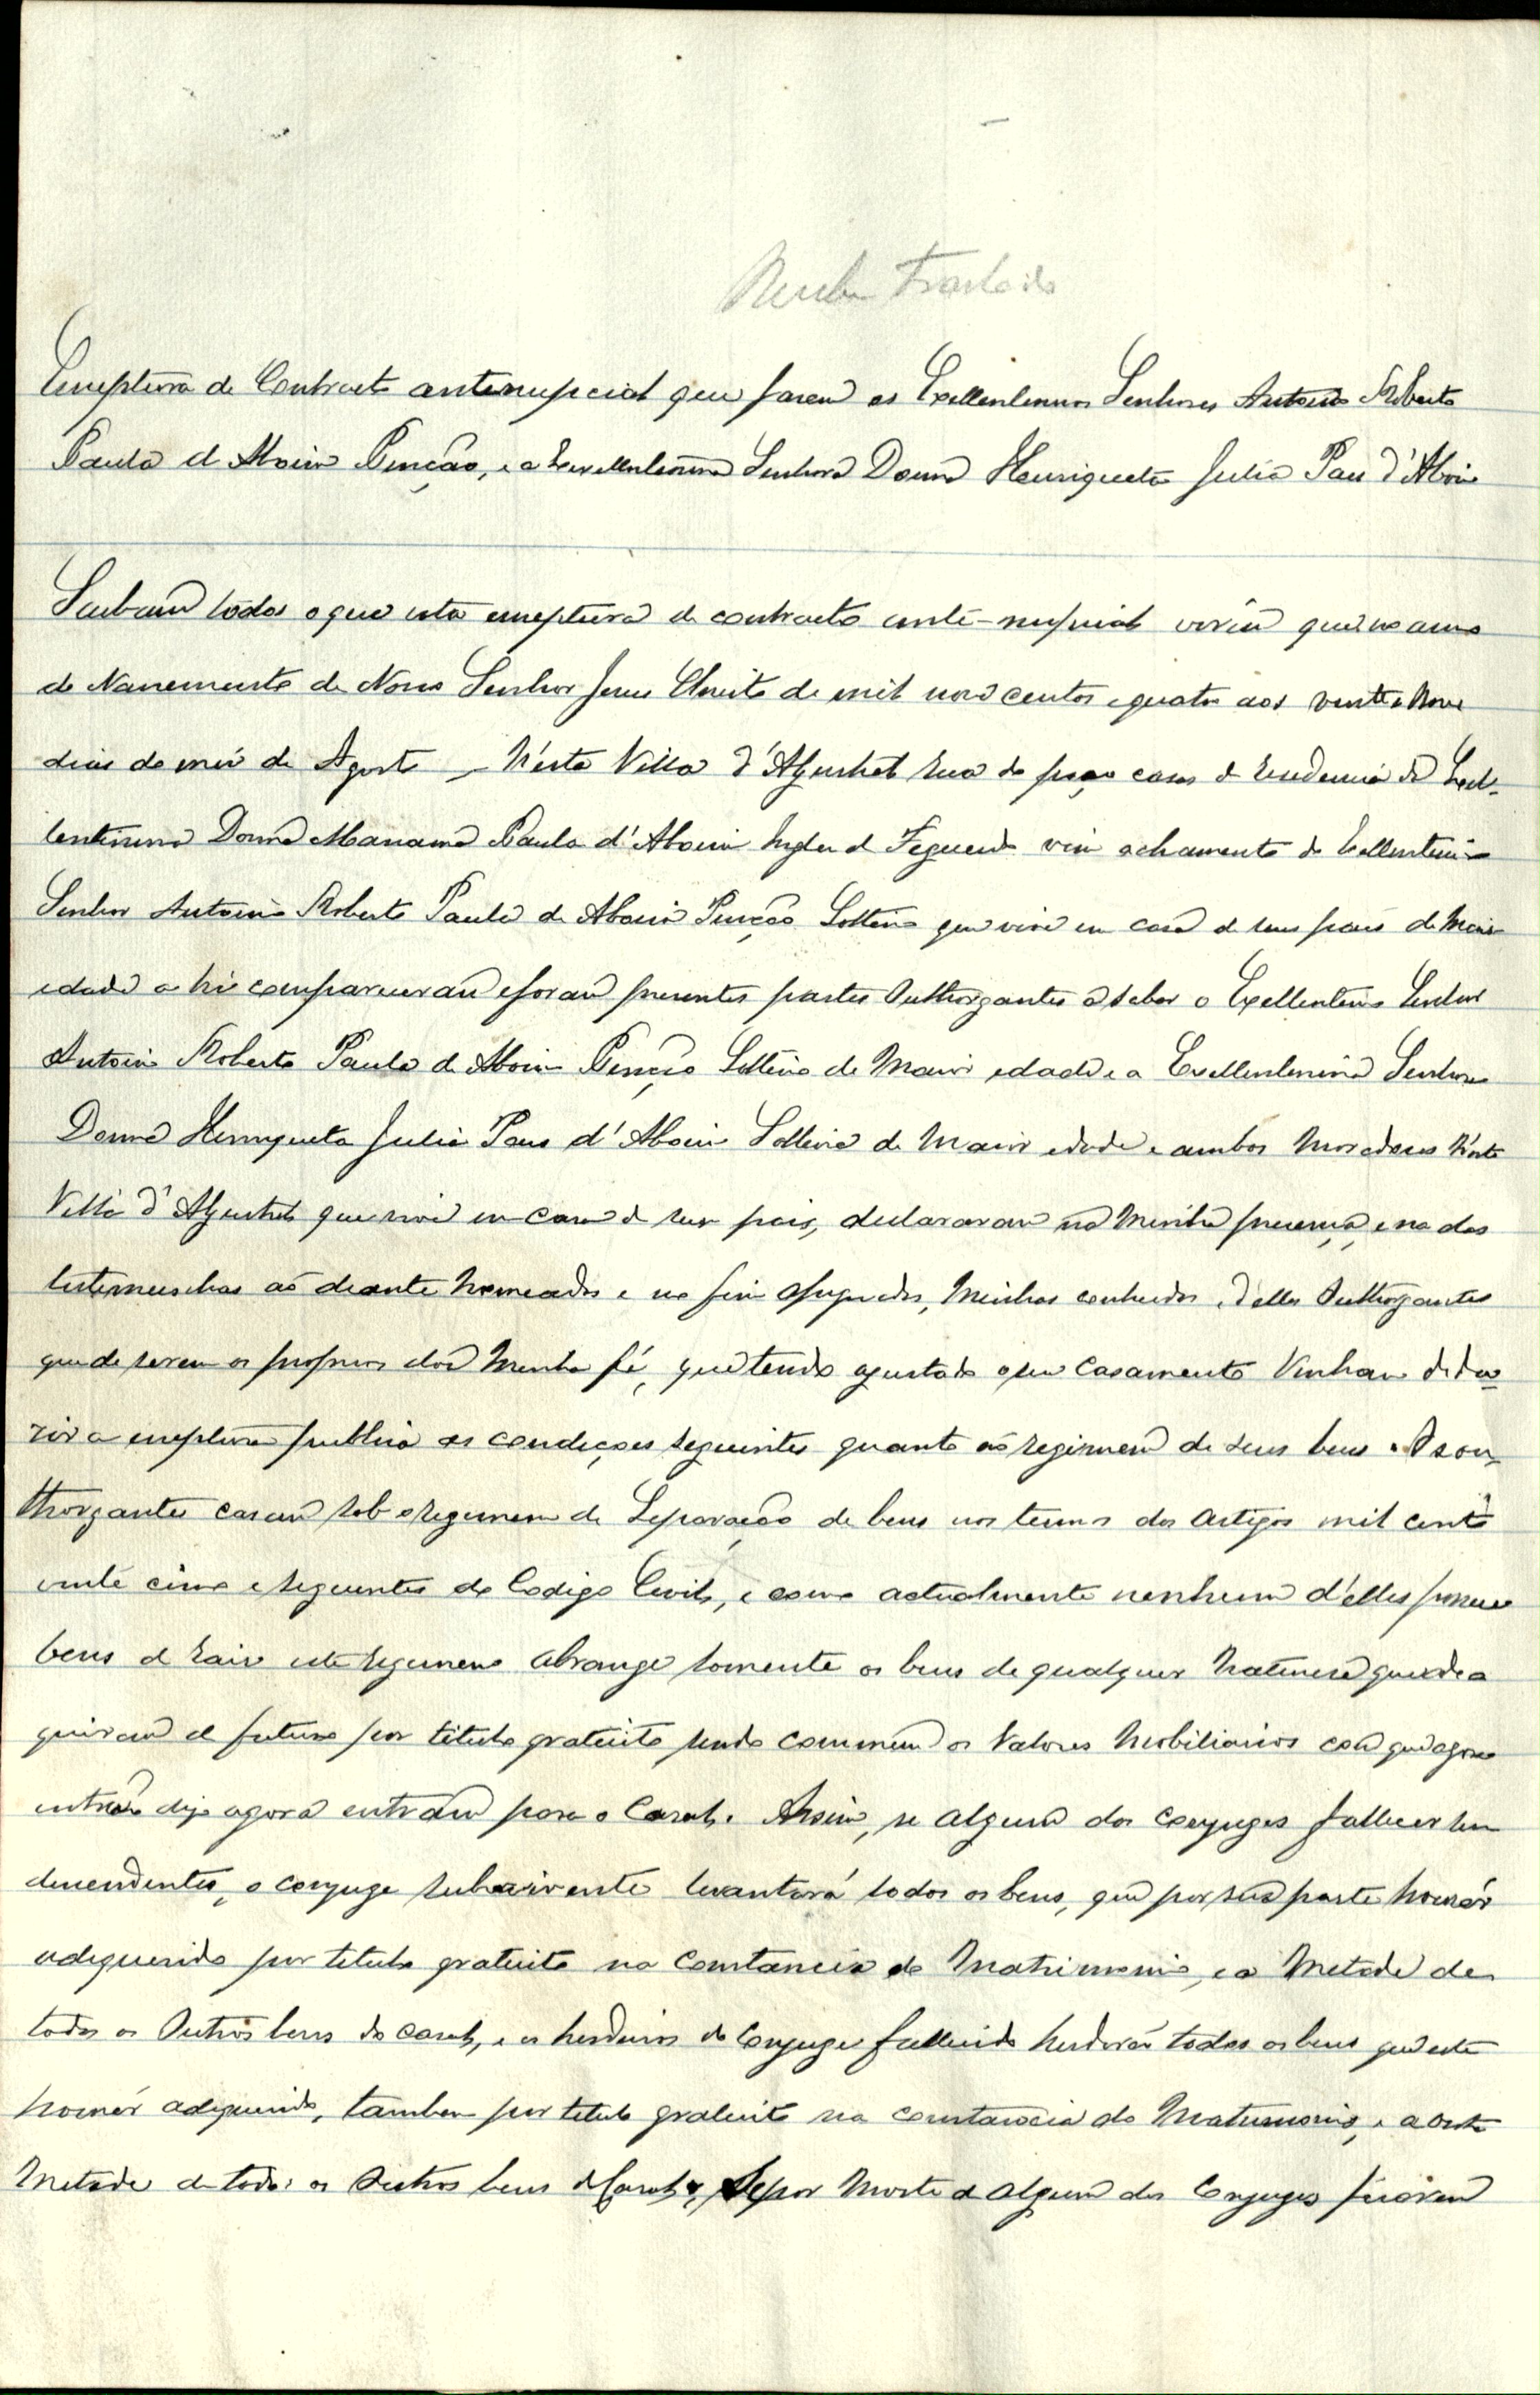 Recebeu Traslado
Escriptura de Contracto antenupcial que fazem os Excellentissimos Senhores Antonio Roberto
Paula d'Aboim Pincão, e a Excellentissima Senhora Donna Henriqueta Julia Paes d'Aboim
Saibam todos o que esta escriptura de contracto ante-nupcial virem que no anno
do Nascimento de Nosso Senhor Jesus Christo de mil nove centos e quatro aos vinte e nove
dias do mez de Agosto n'esta Villa d'Aljustrel rua do poço casas de residencia da Excel-
lentissima Donna Marianna Paula d'Aboim Inglez de Figueredo vim a chamento do Excellentissimo
Senhor Antonio Roberto Paula de Aboim Pincão Solteiro que vive em casa de seus paes de Maior
edade a hi compareceram e foram presentes partes Outhorgantes a saber o Excellentissimo Senhor
Antonio Roberto Paula de Aboim Pincão Solteiro de Maior edade e a Excellentissima Senhora
Donna Henriqueta Julia Paes d'Aboim Solteira de Maior edade e ambos Moradores N'esta
Villa d'Aljustrel que vive em casa de seus paes, declararam na Minha presença, e na das
testemunhas ao deante Nomeadas e no fim assignadas, Minhas conhecidas, e d'elles Outhorgantes
que de serem os proprios dou Minha fé, que tendo ajustado o seu Casamento Vinham dedu-
zir a escriptura publica as condicções seguintes quanto ao regimem de seus bens. Os ou-
thorgantes casam sob o regimem de Separação de bens nos termos dos Artigos mil cento
vinte cinco e seguintes do Codigo Civil, e como actualmente nenhum d'elles possue
bens de raiz este regimem Abrange somente os bens de qualquer Natureza que ad
quiram de futuro por titulo gratuito sendo commum os Valores Mobiliarios com que agora
entram digo agora entram para o Casal. Assim, se algum dos conjuges fallecer sem
descendentes, o conjuge subrevivente levantará todos os bens, que por sua parte houver
adequerido por titulo gratuito na Constancia do Matrimonio, e a Metade de
todos os Outros bens do casal, e os herdeiros do Conjuge fallecido herdarão todos os bens que este
houver adequerido, tambem por titulo gratuito na constancia do Matrimonio, e a outra
Metade de todos os Outros bens do Casal. Se por Morte de Algum dos Conjuges ficarem